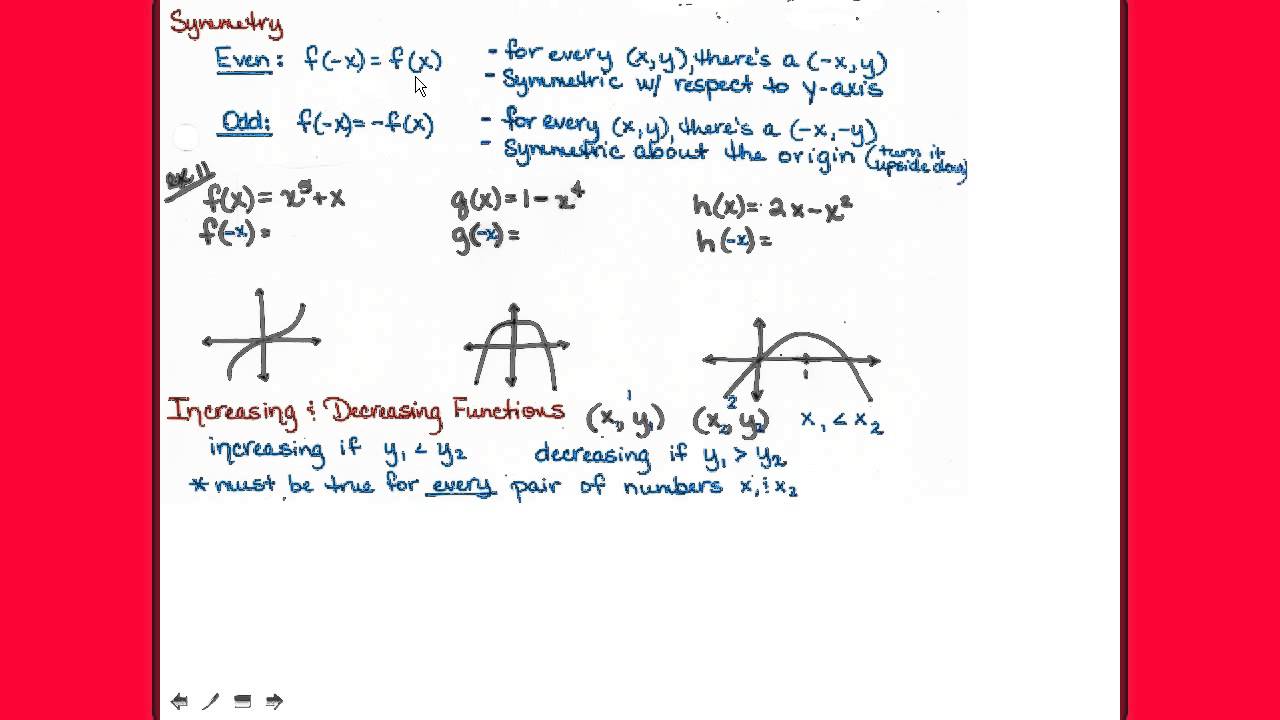 Symmetry
Even: f(-x) = f(x) - for every (x, y), there's a (-x, y)
- Symmetric w/ respect to y-axis
Odd: f(-x) = -f(x) - for every (x, y), there's a (-x, -y)
- Symmetric about the origin (turn it upside down)
ex 11
f(x) = x⁵ + x g(x) = 1 - x⁴ h(x) = 2x - x²
f(-x) = g(-x) = h(-x) =
1
Increasing & Decreasing Functions (x₁, y₁) (x₂, y₂) x₁ < x₂
1 2
increasing if y₁ < y₂ decreasing if y₁ > y₂
* must be true for every pair of numbers x₁ & x₂